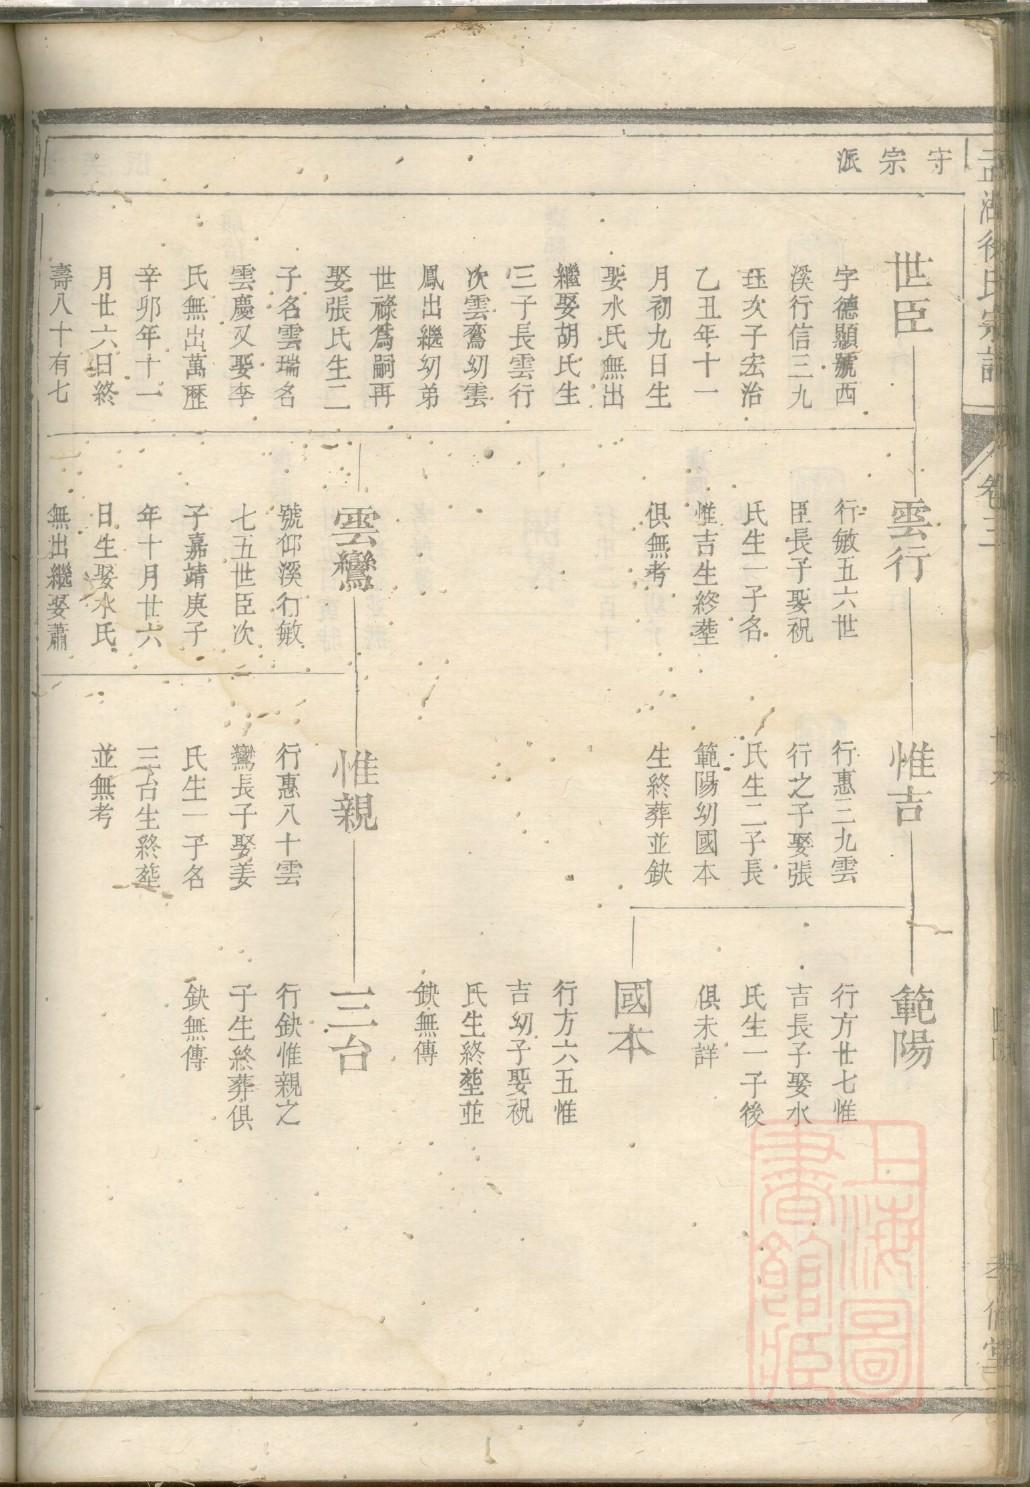 守宗派
世臣
字德顯號西
溪行信三九
珏次子宏治
乙丑年十一
月初九日生
娶水氏無出
繼娶胡氏生
三子長雲行
次雲鸞幼雲
鳳出繼幼弟
世祿爲嗣再
娶張氏生二
子名雲瑞名
雲慶又娶李
氏無出萬歷
辛卯年十一
月廿六日終
壽八十有七
雲行
行敏五六世
臣長子娶祝
氏生一子名
惟吉生終塟
俱無考
雲鸞
號仰溪行敏
七五世臣次
子嘉靖庚子
年十月廿六
日生娶水氏
無出繼娶蕭
惟吉
行惠三九雲
行之子娶張
氏生二子長
範陽幼國本
生終葬並缺
惟親
行惠八十雲
鸞長子娶姜
氏生一子名
三台生終塟
並無考
範陽
行方廿七惟
吉長子娶水
氏生一子後
俱未詳
國本
行方六五惟
吉幼子娶祝
氏生終塟並
缺無傳
三台
行缺惟親之
子生終葬俱
缺無傳
卷三
上海圖
書館藏